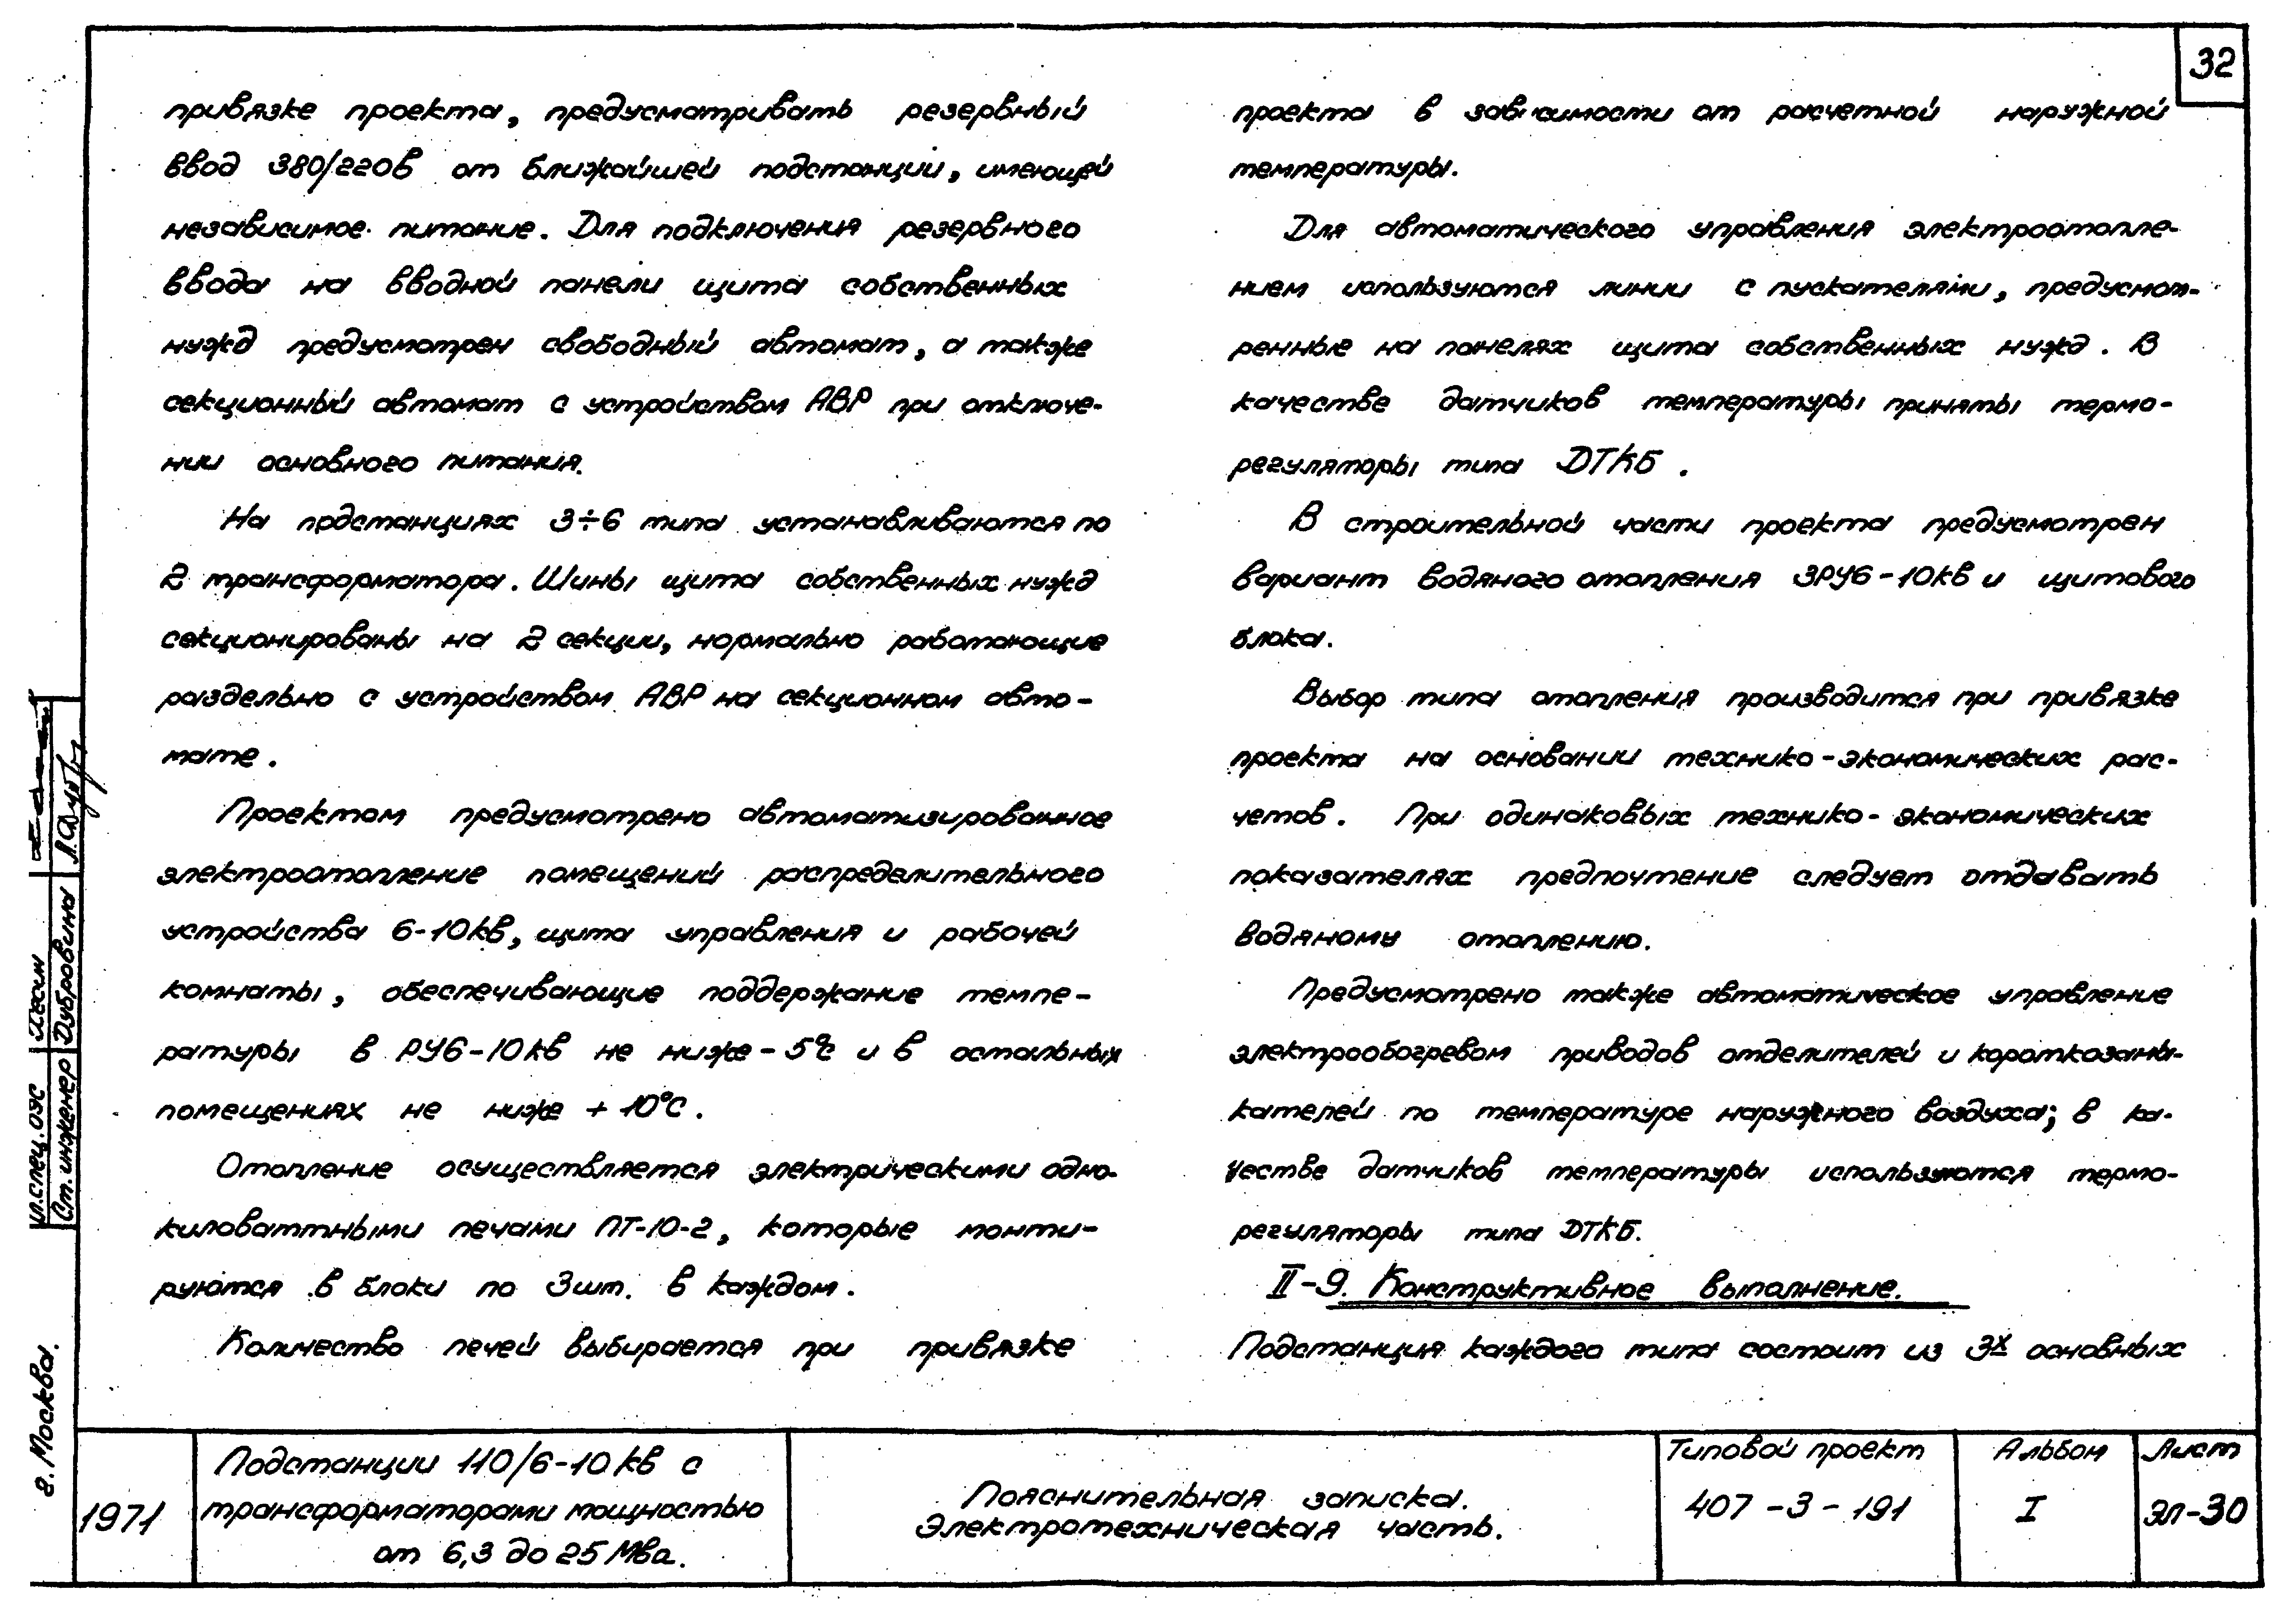 32
привязке проекта, предусматривать резервный
ввод 380/220в от ближайшей подстанции, имеющей
независимое питание. Для подключения резервного
ввода на вводной панели щита собственных
нужд предусмотрен свободный автомат, а также
секционный автомат с устройством АВР при отключе-
нии основного питания.
На подстанциях 3÷6 типа устанавливаются по
2 трансформатора. Шины щита собственных нужд
секционированы на 2 секции, нормально работающие
раздельно с устройством АВР на секционном авто-
мате.
Проектом предусмотрено автоматизированное
электроотопление помещений распределительного
устройства 6-10кв, щита управления и рабочей
комнаты, обеспечивающие поддержание темпе-
ратуры в РУ6-10кв не ниже -5°С и в остальных
помещениях не ниже +10°С.
Отопление осуществляется электрическими одно-
киловаттными печами ПТ-10-2, которые монти-
руются в блоки по 3шт. в каждом.
Количество печей выбирается при привязке
проекта в зависимости от расчетной наружной
температуры.
Для автоматического управления электроотопле-
нием используются линии с пускателями, предусмот-
ренные на панелях щита собственных нужд. В
качестве датчиков температуры приняты термо-
регуляторы типа ДТКБ.
В строительной части проекта предусмотрен
вариант водяного отопления ЗРУ6-10кв и щитового
блока.
Выбор типа отопления производится при привязке
проекта на основании технико-экономических рас-
четов. При одинаковых технико-экономических
показателях предпочтение следует отдавать
водяному отоплению.
Предусмотрено также автоматическое управление
электрообогревом приводов отделителей и короткозамы-
кателей по температуре наружного воздуха; в ка-
честве датчиков температуры используются термо-
регуляторы типа ДТКБ.
II-9. Конструктивное выполнение.
Подстанция каждого типа состоит из 3х основных
Гл.спец.ОЭС Хесин
Ст.инженер Дубровина
г. Москва.
1971
Подстанции 110/6-10кв с
трансформаторами мощностью
от 6,3 до 25 Мва.
Пояснительная записка.
Электротехническая часть.
Типовой проект
407-3-191
Альбом
I
Лист
ЭЛ-30